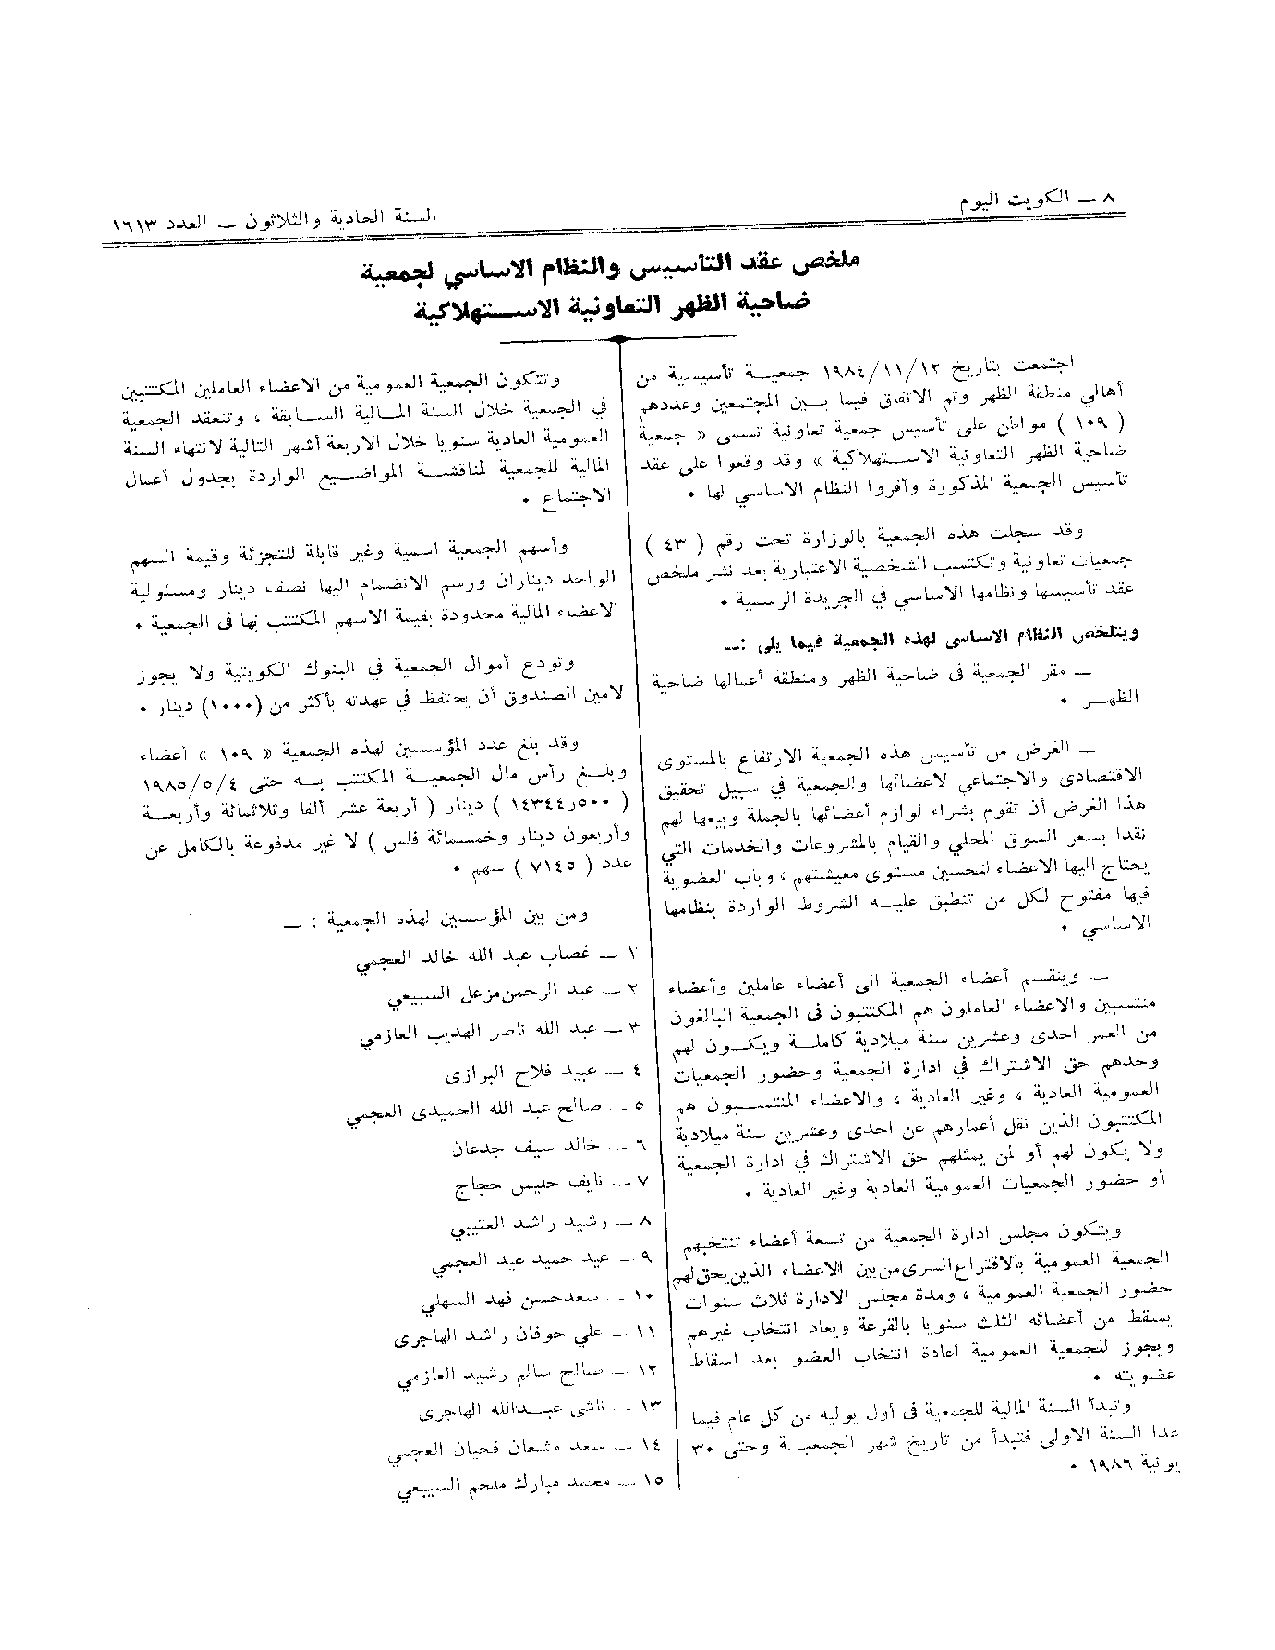 ٨ — الكويت اليوم
السنة الحادية والثلاثون — العدد ١٦١٣
ملخص عقد التأسيس والنظام الاساسي لجمعية
ضاحية الظهر التعاونية الاستهلاكية
اجتمعت بتاريخ ١٩٨٤/١١/١٢ جمعية تأسيسية من
أهالي منطقة الظهر وتم الاتفاق فيما بين المجتمعين وعددهم
( ١٠٩ ) مواطن على تأسيس جمعية تعاونية تسمى « جمعية
ضاحية الظهر التعاونية الاستهلاكية » وقد وقعوا على عقد
تأسيس الجمعية المذكورة وأقروا النظام الاساسي لها •
وقد سجلت هذه الجمعية بالوزارة تحت رقم ( ٤٣ )
جمعيات تعاونية وتكتسب الشخصية الاعتبارية بعد نشر ملخص
عقد تأسيسها ونظامها الاساسي في الجريدة الرسمية •
ويتلخص النظام الاساسى لهذه الجمعية فيما يلى :—
— مقر الجمعية فى ضاحية الظهر ومنطقة أعمالها ضاحية
الظهر •
— الغرض من تأسيس هذه الجمعية الارتفاع بالمستوى
الاقتصادى والاجتماعي لاعضائها والجمعية في سبيل تحقيق
هذا الغرض أن تقوم بشراء لوازم أعضائها بالجملة وبيعها لهم
نقدا بسعر السوق المحلي والقيام بالمشروعات والخدمات التي
يحتاج اليها الاعضاء لتحسين مستوى معيشتهم ، وباب العضوية
فيها مفتوح لكل من تنطبق عليه الشروط الواردة بنظامها
الاساسي •
— وينقسم أعضاء الجمعية الى أعضاء عاملين وأعضاء
منتسبين والاعضاء العاملون هم المكتتبون فى الجمعية البالغون
من العمر احدى وعشرين سنة ميلادية كاملة ويكون لهم
وحدهم حق الاشتراك في ادارة الجمعية وحضور الجمعيات
العمومية العادية ، وغير العادية ، والاعضاء المنتسبون هم
المكتتبون الذين تقل أعمارهم عن احدى وعشرين سنة ميلادية
ولا يكون لهم أو لمن يمثلهم حق الاشتراك في ادارة الجمعية
أو حضور الجمعيات العمومية العادية وغير العادية •
ويتكون مجلس ادارة الجمعية من تسعة أعضاء تنتخبهم
الجمعية العمومية بالاقتراع السرى من بين الاعضاء الذين يحق لهم
حضور الجمعية العمومية ، ومدة مجلس الادارة ثلاث سنوات
يسقط من أعضائه الثلث سنويا بالقرعة ويعاد انتخاب غيرهم
ويجوز للجمعية العمومية اعادة انتخاب العضو بعد اسقاط
عضويته •
وتبدأ السنة المالية للجمعية فى أول يوليه من كل عام فيما
عدا السنة الاولى فتبدأ من تاريخ شهر الجمعية وحتى ٣٠
يونية ١٩٨٦ •
وتتكون الجمعية العمومية من الاعضاء العاملين المكتتبين
في الجمعية خلال السنة المالية السابقة ، وتنعقد الجمعية
العمومية العادية سنويا خلال الاربعة أشهر التالية لانتهاء السنة
المالية للجمعية لمناقشة المواضيع الواردة بجدول أعمال
الاجتماع •
وأسهم الجمعية اسمية وغير قابلة للتجزئة وقيمة السهم
الواحد ديناران ورسم الانضمام اليها نصف دينار ومسئولية
الاعضاء المالية محدودة بقيمة الاسهم المكتتب بها فى الجمعية •
وتودع أموال الجمعية في البنوك الكويتية ولا يجوز
لامين الصندوق أن يحتفظ في عهدته بأكثر من (١٠٠٠) دينار •
وقد بلغ عدد المؤسسين لهذه الجمعية « ١٠٩ » أعضاء
وبلغ رأس مال الجمعية المكتتب به حتى ١٩٨٥/٥/٤
( ٥٠٠ر١٤٣٤٤ ) دينار ( أربعة عشر ألفا وثلاثمائة وأربعة
وأربعون دينار وخمسمائة فلس ) لا غير مدفوعة بالكامل عن
عدد ( ٧١٤٥ ) سهم •
ومن بين المؤسسين لهذه الجمعية : —
١ — غصاب عبد الله خالد العجمي
٢ — عبد الرحمن مزعل السبيعي
٣ — عبد الله ناصر الهديب العازمي
٤ — عبيد فلاح البرازى
٥ — صالح عبد الله الحميدى العجمي
٦ — خالد سيف جدعان
٧ — نايف حليس حجاج
٨ — رشيد راشد العتيبي
٩ — عيد حميد عيد العجمي
١٠ — سعد حسن فهد السهلي
١١ — علي حوفان راشد الهاجرى
١٢ — صالح سالم رشيد العازمي
١٣ — ناشى عبدالله الهاجرى
١٤ — سعد مشعان فحيان العجمي
١٥ — محمد مبارك ملحم السبيعي